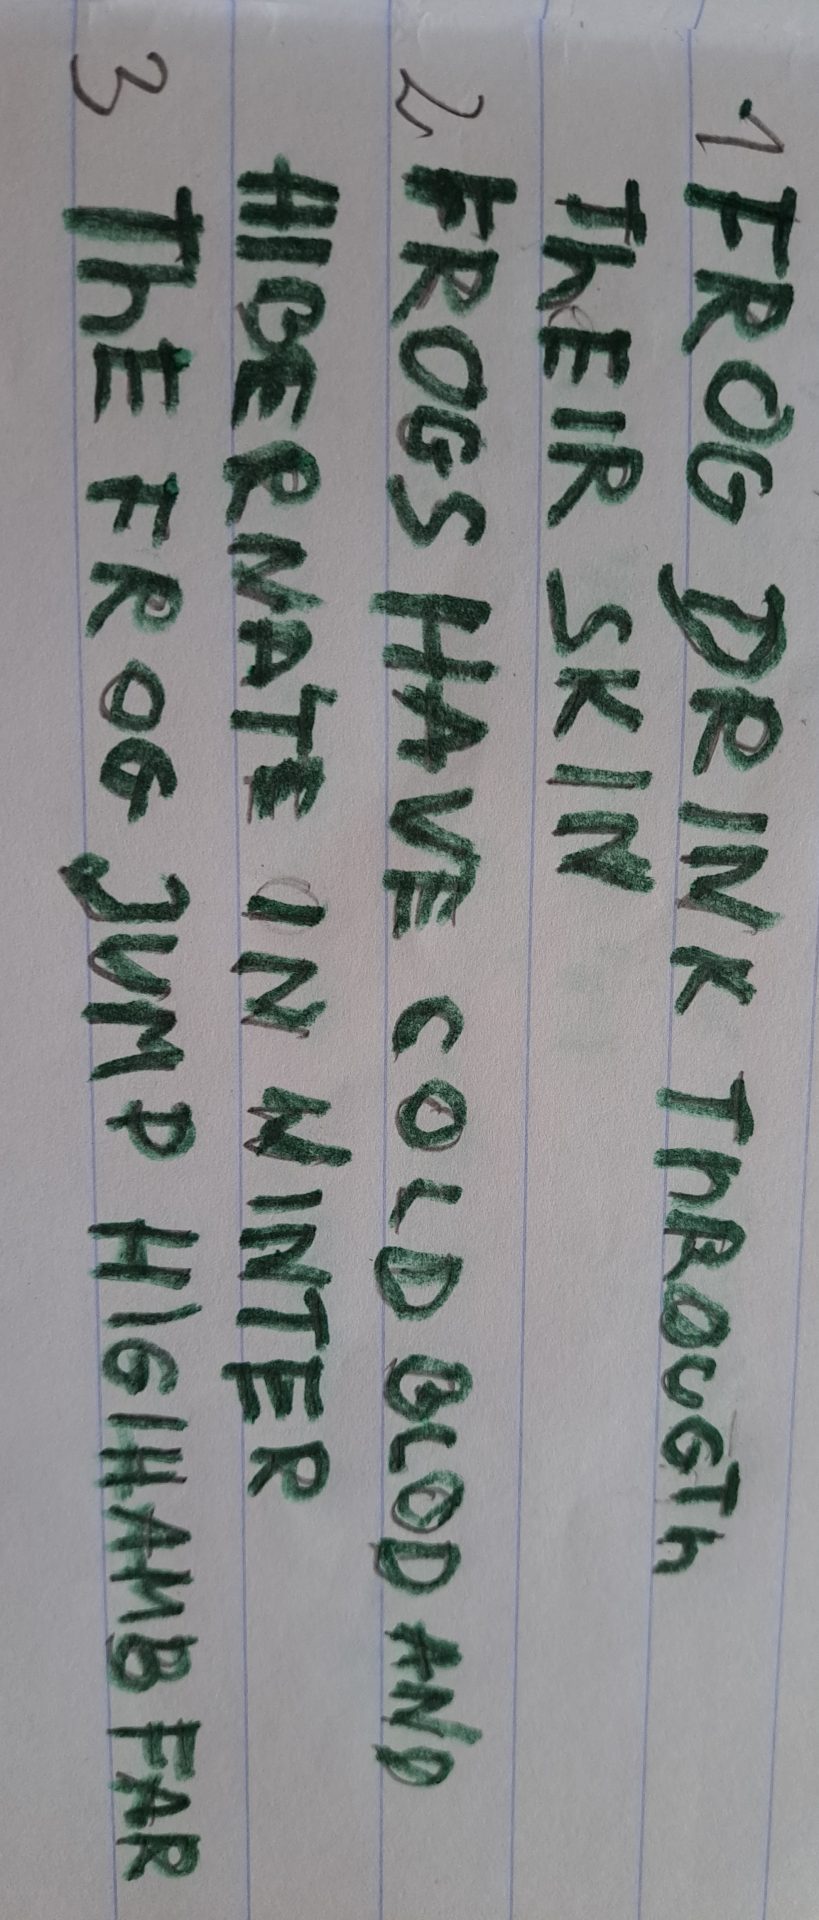 1 FROG DRINK ThROUGTh
ThEIR SKIN
2. FROGS HAVE COLD BLOD AND
HIBERNATE IN WINTER
3 ThE FROG JUMP HIGIHAMB FAR